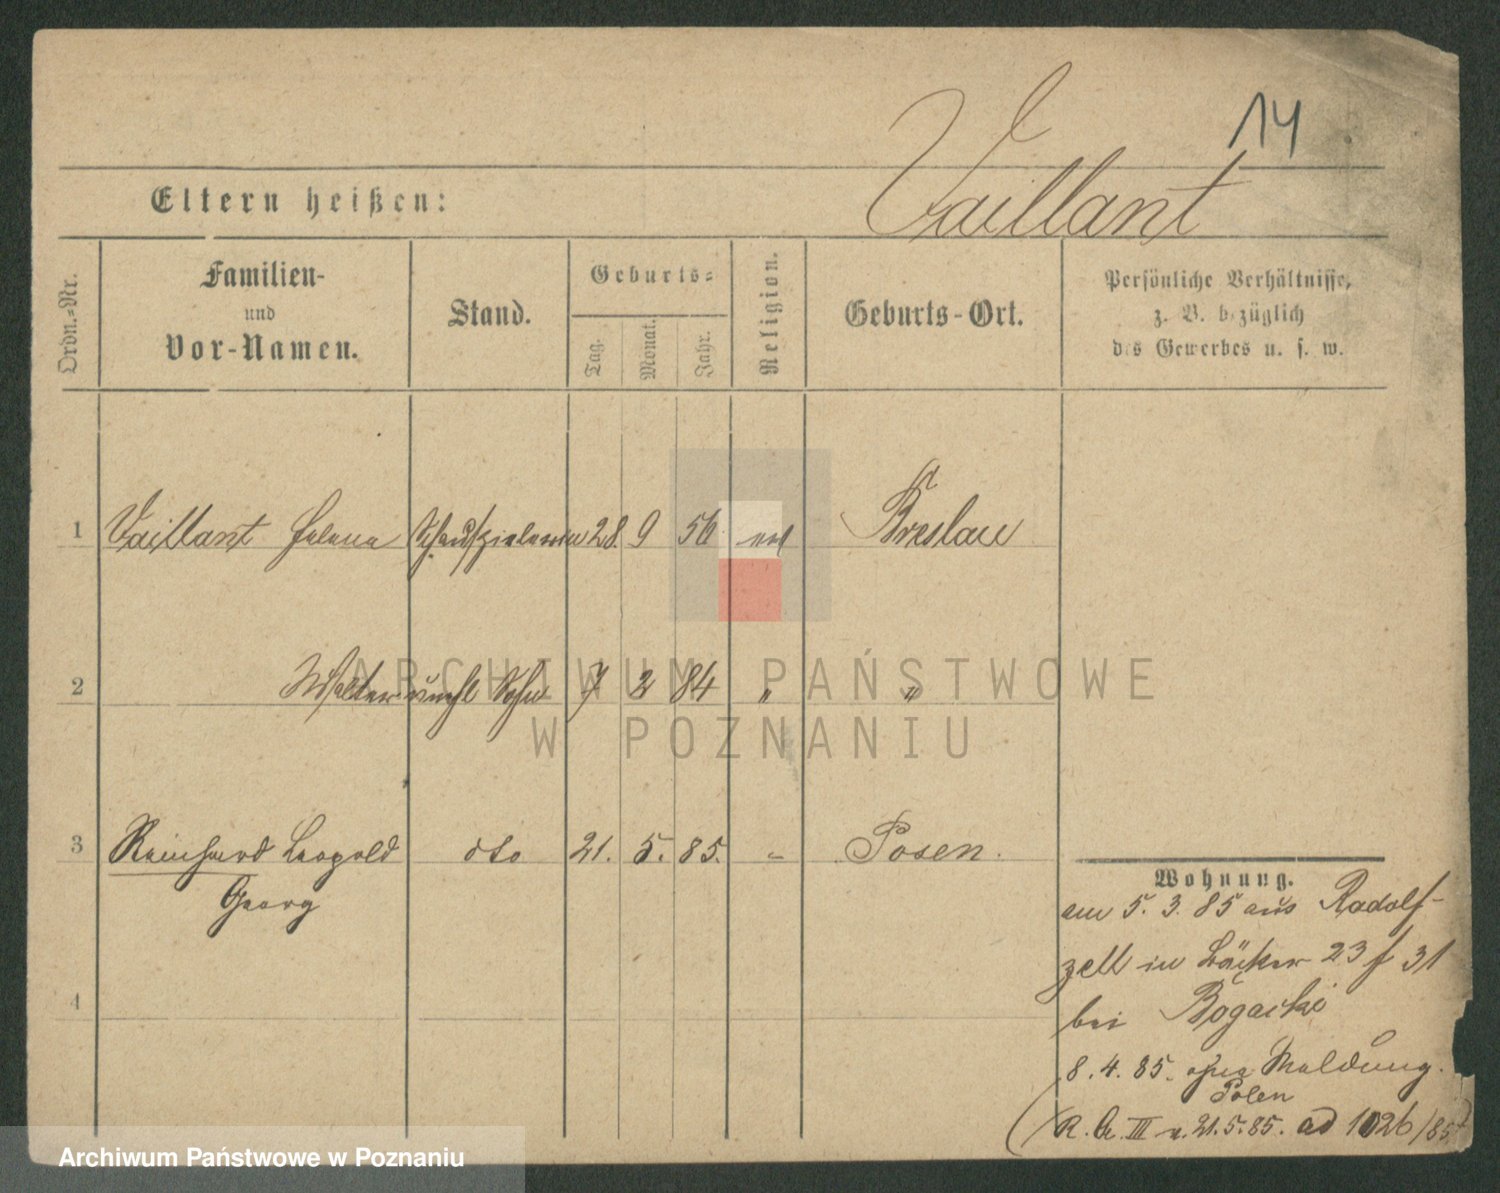 14
Vaillant
Eltern heißen:
Ordn.-Nr.
Familien-
und
Vor-Namen.
Stand.
Geburts-
Tag.
Monat.
Jahr.
Religion.
Geburts-Ort.
Persönliche Verhältnisse,
z. B. bezüglich
des Gewerbes u. s. w.
1 Vaillant Helene Schauspielerin 28. 9 56 Breslau
2 Walter unehl Sohn 7 2 84 " "
3 Reinhard Leopold dto 21. 5. 85. - Posen.
Georg
4
Wohnung.
am 5. 3. 85 aus Radolf-
zell in Bäcker 23 f 31
bei Bogacki
8. 4. 85. ohne Meldung.
Posen
(R. A. III v. 21.5.85. ad 1026/85)
ARCHIWUM PAŃSTWOWE
W POZNANIU
Archiwum Państwowe w Poznaniu